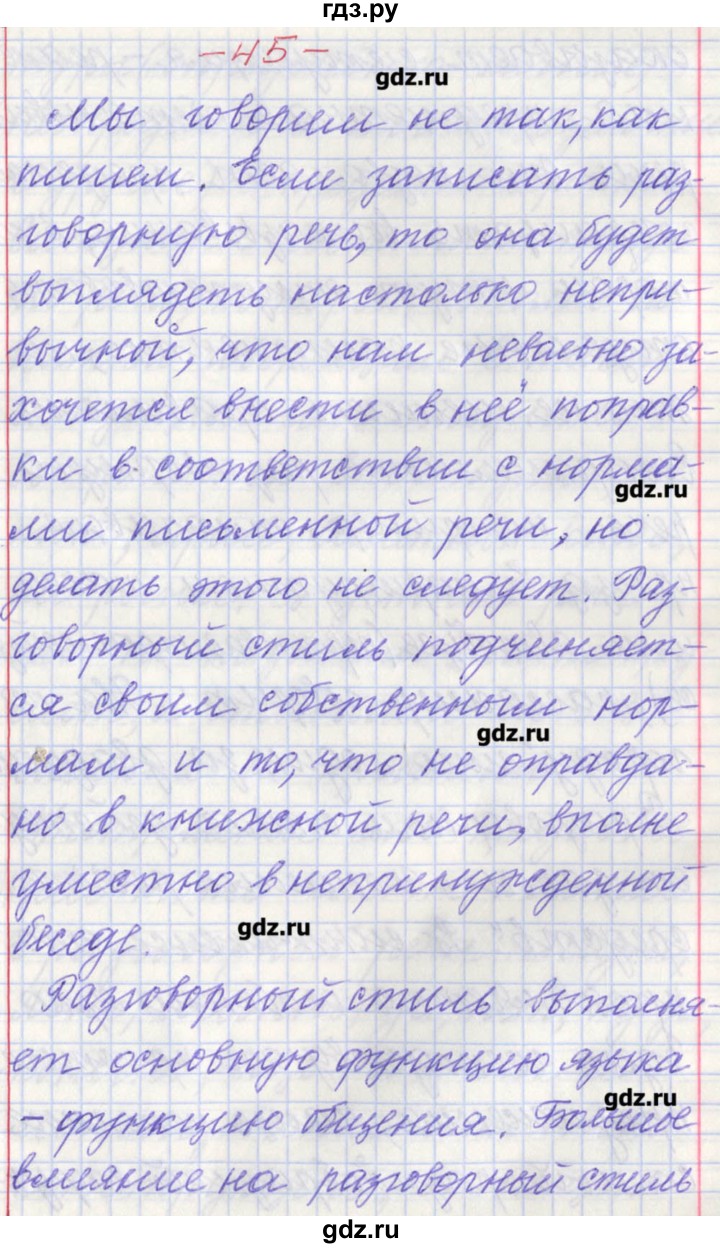 гдз.ру
-45-
gdz.ru
Мы говорим не так, как
пишем. Если записать раз-
говорную речь, то она будет
выглядеть настолько непри-
вычной, что нам невольно за-
хочется внести в неё поправ-
ки в соответствии с норма-
gdz.ru
ми письменной речи, но
делать этого не следует. Раз-
говорный стиль подчиняет-
ся своим собственным нор-
gdz.ru
мам и то, что не оправда-
но в книжной речи, вполне
уместно в непринужденной
беседе.
gdz.ru
Разговорный стиль выполня-
ет основную функцию языка
gdz.ru
- функцию общения. Большое
влияние на разговорный стиль
gdz.ru